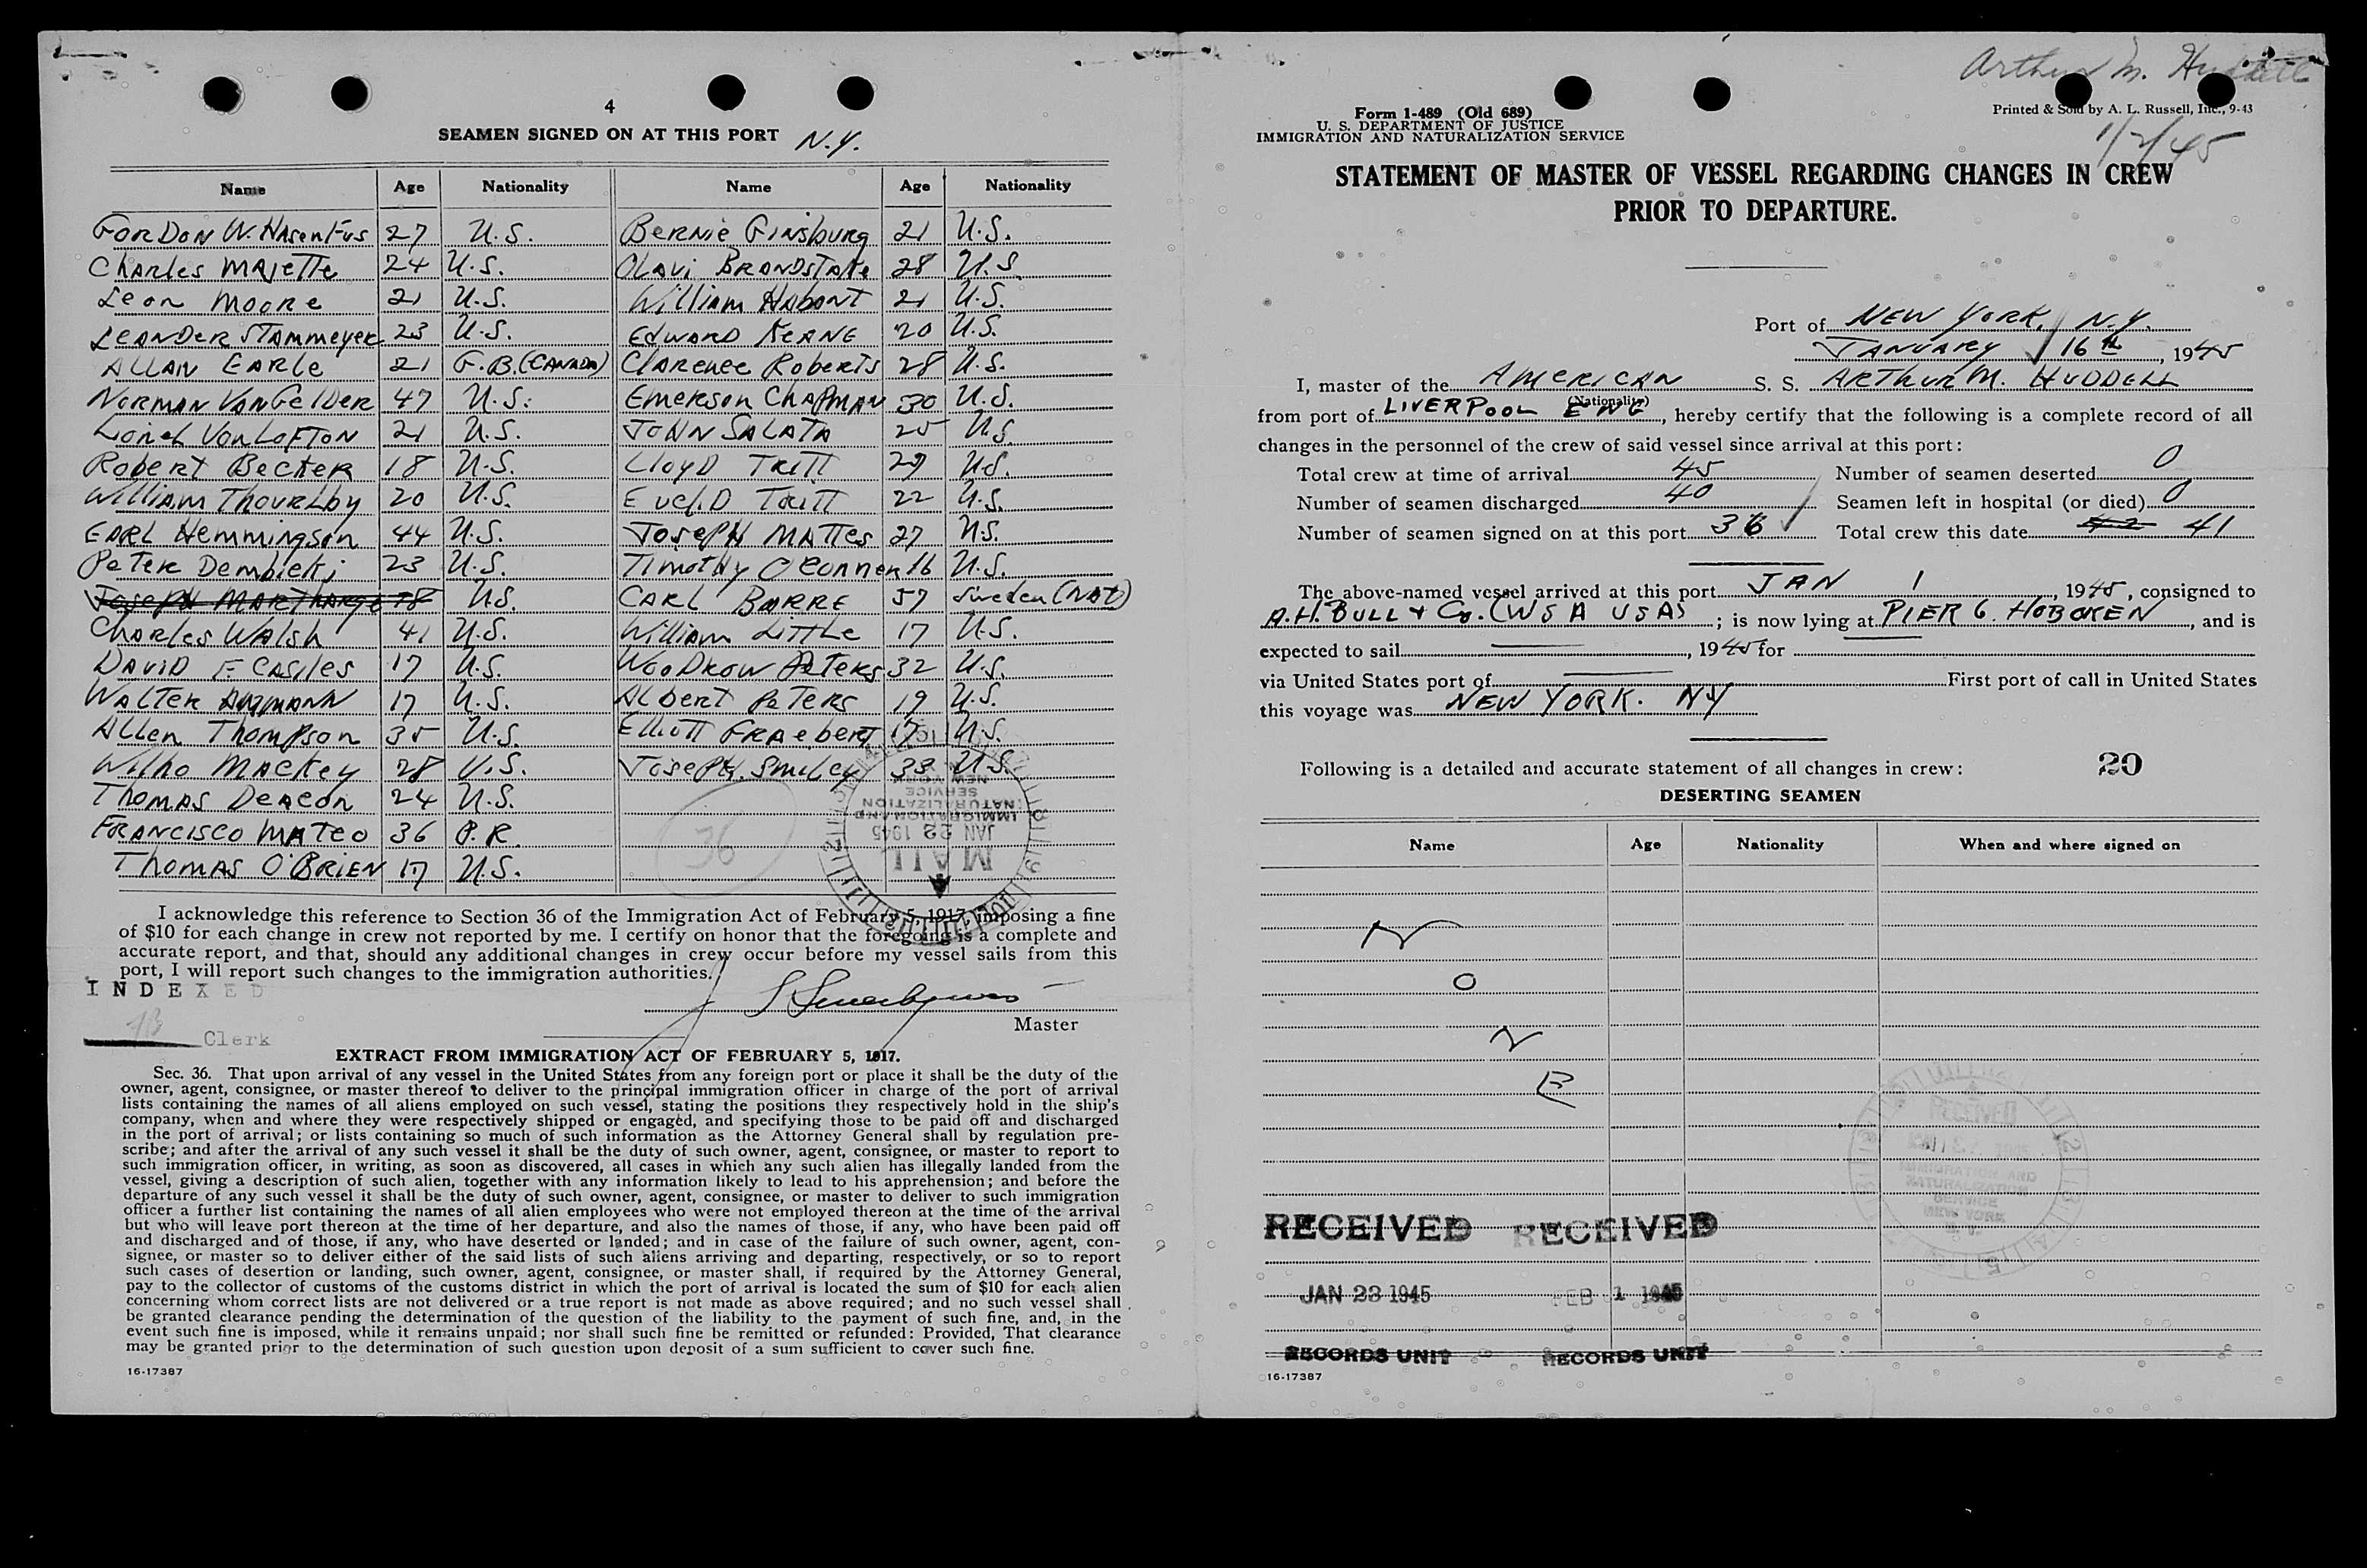 4
SEAMEN SIGNED ON AT THIS PORT N.Y.
Name Age Nationality Name Age Nationality
GORDON W. HASENFUS 27 U.S. BERNIE GINSBURG 21 U.S.
Charles MAJETTE 24 U.S. OLAVI BRANDSTATE 28 U.S.
Leon Moore 21 U.S. William HABONT 21 U.S.
LEANDER STAMMEYER 23 U.S. EDWARD KEANE 20 U.S.
ALLAN EARLE 21 G.B. (CANADA) Clarence Roberts 28 U.S.
NORMAN VANGELDER 47 U.S. EMERSON CHAPMAN 30 U.S.
Lionel VonLOFTON 21 U.S. JOHN SALATA 25 U.S.
Robert Becker 18 U.S. LLOYD TRITT 27 U.S.
William THOURLBY 20 U.S. EUCLID TRITT 22 U.S.
EARL Hemmingson 44 U.S. JOSEPH MATTES 27 U.S.
Peter Dembicki 23 U.S. Timothy O'Conner 16 U.S.
Joseph MARTHARGE 18 U.S. CARL BARRE 57 Sweden (NAT)
Charles Walsh 41 U.S. William Little 17 U.S.
DAVID F. CASTLES 17 U.S. WOODROW PETERS 32 U.S.
WALTER AMMANN 17 U.S. Albert PETERS 19 U.S.
Allen Thompson 35 U.S. Elliott GRAEBERT 17 U.S.
Wilho Mackey 28 U.S. Joseph Smiley 33 U.S.
Thomas Deacon 24 U.S.
FRANCISCO MATEO 36 P.R.
THOMAS O'BRIEN 17 U.S.
36
MAIL
JAN 22 1945
IMMIGRATION AND
NATURALIZATION
SERVICE
NEW YORK
I acknowledge this reference to Section 36 of the Immigration Act of February 5, 1917, imposing a fine
of $10 for each change in crew not reported by me. I certify on honor that the foregoing is a complete and
accurate report, and that, should any additional changes in crew occur before my vessel sails from this
port, I will report such changes to the immigration authorities.
INDEXED
Master
Clerk
EXTRACT FROM IMMIGRATION ACT OF FEBRUARY 5, 1917.
Sec. 36. That upon arrival of any vessel in the United States from any foreign port or place it shall be the duty of the
owner, agent, consignee, or master thereof to deliver to the principal immigration officer in charge of the port of arrival
lists containing the names of all aliens employed on such vessel, stating the positions they respectively hold in the ship's
company, when and where they were respectively shipped or engaged, and specifying those to be paid off and discharged
in the port of arrival; or lists containing so much of such information as the Attorney General shall by regulation pre-
scribe; and after the arrival of any such vessel it shall be the duty of such owner, agent, consignee, or master to report to
such immigration officer, in writing, as soon as discovered, all cases in which any such alien has illegally landed from the
vessel, giving a description of such alien, together with any information likely to lead to his apprehension; and before the
departure of any such vessel it shall be the duty of such owner, agent, consignee, or master to deliver to such immigration
officer a further list containing the names of all alien employees who were not employed thereon at the time of the arrival
but who will leave port thereon at the time of her departure, and also the names of those, if any, who have been paid off
and discharged and of those, if any, who have deserted or landed; and in case of the failure of such owner, agent, con-
signee, or master so to deliver either of the said lists of such aliens arriving and departing, respectively, or so to report
such cases of desertion or landing, such owner, agent, consignee, or master shall, if required by the Attorney General,
pay to the collector of customs of the customs district in which the port of arrival is located the sum of $10 for each alien
concerning whom correct lists are not delivered or a true report is not made as above required; and no such vessel shall
be granted clearance pending the determination of the question of the liability to the payment of such fine, and, in the
event such fine is imposed, while it remains unpaid; nor shall such fine be remitted or refunded: Provided, That clearance
may be granted prior to the determination of such question upon deposit of a sum sufficient to cover such fine.
16-17387
Arthur M. Huddell
Form 1-489 (Old 689)
U. S. DEPARTMENT OF JUSTICE
IMMIGRATION AND NATURALIZATION SERVICE
Printed & Sold by A. L. Russell, Inc., 9-43
1/2/45
STATEMENT OF MASTER OF VESSEL REGARDING CHANGES IN CREW
PRIOR TO DEPARTURE.
Port of NEW YORK, N.Y.
JANUARY 16th, 1945
I, master of the AMERICAN S. S. ARTHUR M. HUDDELL
(Nationality)
from port of LIVERPOOL ENG, hereby certify that the following is a complete record of all
changes in the personnel of the crew of said vessel since arrival at this port:
Total crew at time of arrival 45 Number of seamen deserted 0
Number of seamen discharged 40 Seamen left in hospital (or died) 0
Number of seamen signed on at this port 36 Total crew this date 42 41
The above-named vessel arrived at this port JAN 1, 1945, consigned to
A.H. BULL & Co. (WSA USA); is now lying at PIER 6. HOBOKEN, and is
expected to sail, 1945 for
via United States port of First port of call in United States
this voyage was NEW YORK. NY
Following is a detailed and accurate statement of all changes in crew: 20
DESERTING SEAMEN
Name Age Nationality When and where signed on
N
O
N
E
RECEIVED
IMMIGRATION AND
NATURALIZATION
SERVICE
NEW YORK
RECEIVED RECEIVED
JAN 23 1945 FEB 1 1945
RECORDS UNIT RECORDS UNIT
16-17387